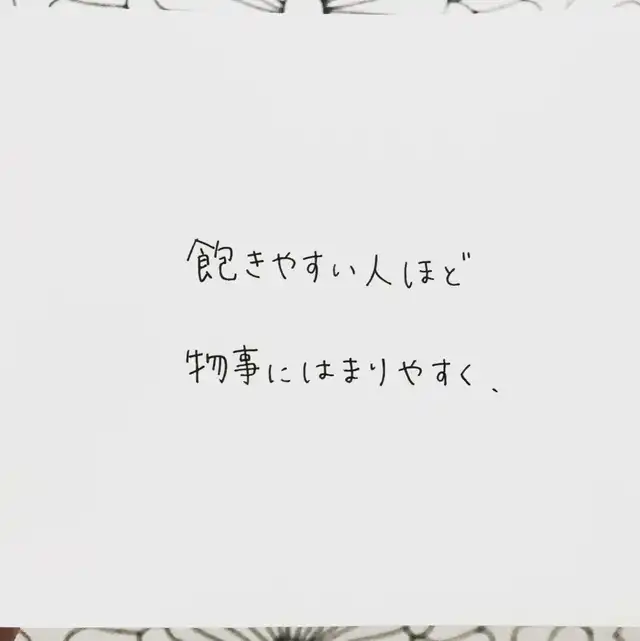 飽きやすい人ほど
物事にはまりやすく、